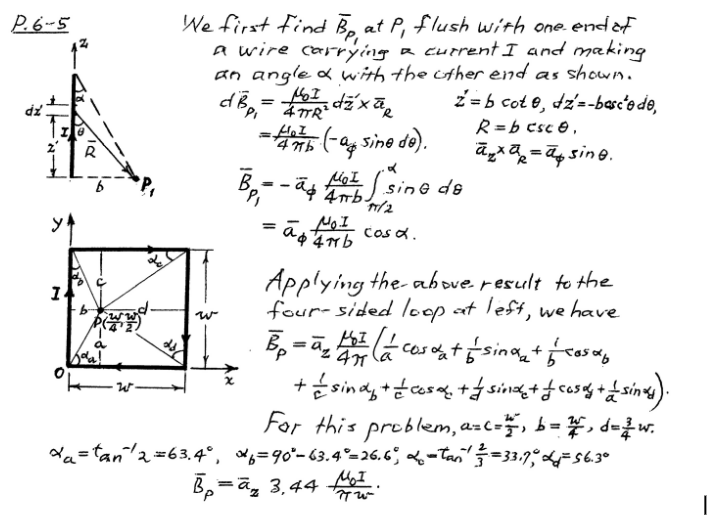 P.6-5
We first find B̄_P₁ at P₁ flush with one end of
a wire carrying a current I and making
an angle α with the other end as shown.
dB̄_P₁ = μ₀I/4πR² dz̄' × ā_R
z' = b cot θ, dz' = -b csc²θ dθ,
= μ₀I/4πb (-ā_φ sin θ dθ).
R = b csc θ,
ā_z × ā_R = ā_φ sin θ.
B̄_P₁ = -ā_φ μ₀I/4πb ∫_{π/2}^{α} sin θ dθ
= ā_φ μ₀I/4πb cos α.
z
α
dz'
I
θ
z'
R̄
b
P₁
y
α_b
c
α_c
I
b
d
P(w/4, w/2)
w
a
α_a
α_d
O
w
x
Applying the above result to the
four-sided loop at left, we have
B̄_P = ā_z μ₀I/4π (1/a cos α_a + 1/b sin α_a + 1/b cos α_b
+ 1/c sin α_b + 1/c cos α_c + 1/d sin α_c + 1/d cos α_d + 1/a sin α_d).
For this problem, a=c=w/2, b=w/4, d=3/4 w.
α_a = tan⁻¹2 = 63.4°, α_b = 90°-63.4° = 26.6°, α_c = tan⁻¹ 2/3 = 33.7°, α_d = 56.3°
B̄_P = ā_z 3.44 μ₀I/πw.